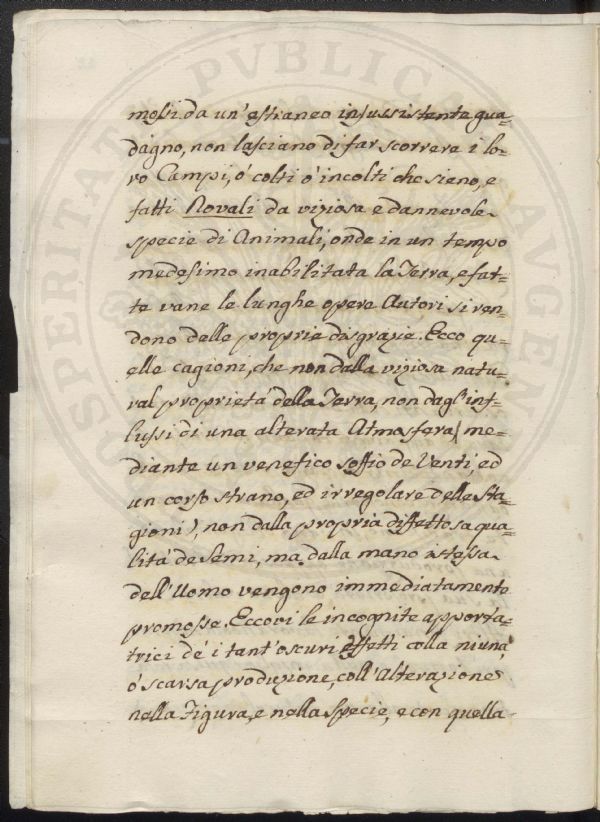 mossi da un'estraneo insussistente gua=
dagno, non lasciano di far scorrere i lo=
ro Campi, ó colti ó incolti che sieno, e
fatti Novali da viziosa e dannevole
specie di Animali, onde in un tempo
medesimo inabilitata la Terra, e fat=
te vane le lunghe opere Autori si ren=
dono delle proprie disgrazie. Ecco qu=
elle cagioni, che non dalla viziosa natu=
ral proprietá della Terra, non dagl'inf=
lussi di una alterata Atmosfera (me=
diante un venefico soffio de Venti, ed
un corso strano, ed irregolare delle Sta=
gioni), non dalla propria diffettosa qua=
litá de Semi, ma dalla mano istessa
dell'Uomo vengono immediatamente
promosse. Eccovi le incognite apporta=
trici dé i tant'oscuri effetti colla niuna,
ó scarsa produzione, coll'Alterazione
nella Figura, e nella Specie, e con quella
PVBLICA
AVGEN
OSPERITAT